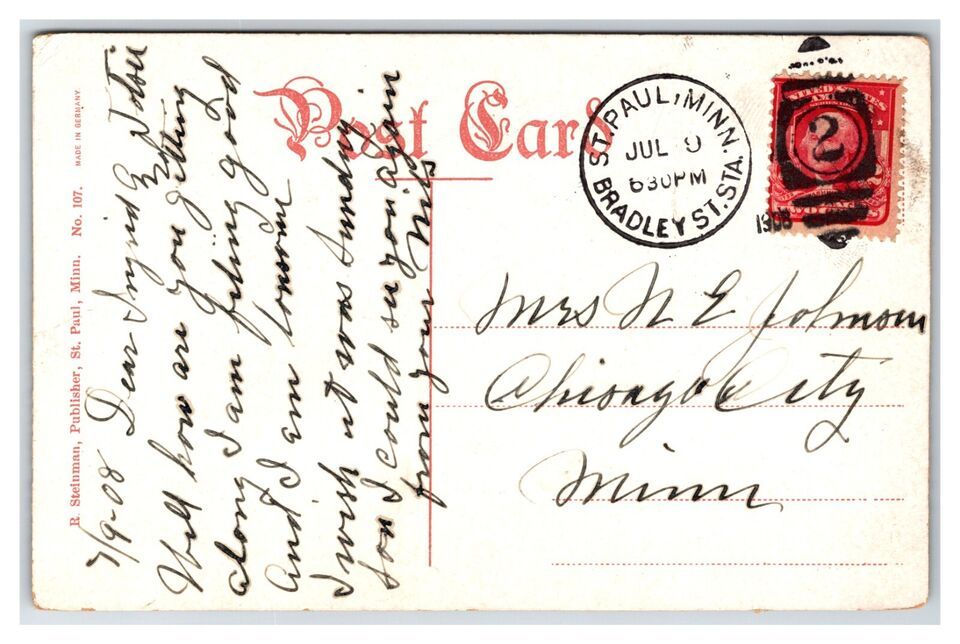 Post Card
MADE IN GERMANY.
R. Steinman, Publisher, St. Paul, Minn. No. 107.
ST. PAUL, MINN.
JUL 9
630PM
1908
BRADLEY ST. STA.
2
UNITED STATES
7/9-08 Dear
Well how are you getting
along I am feling good
and I am lonsome
I wish it was Sunday
son I could see you again
from your Miss
Mrs N E Johnson
Chicago City
Minn